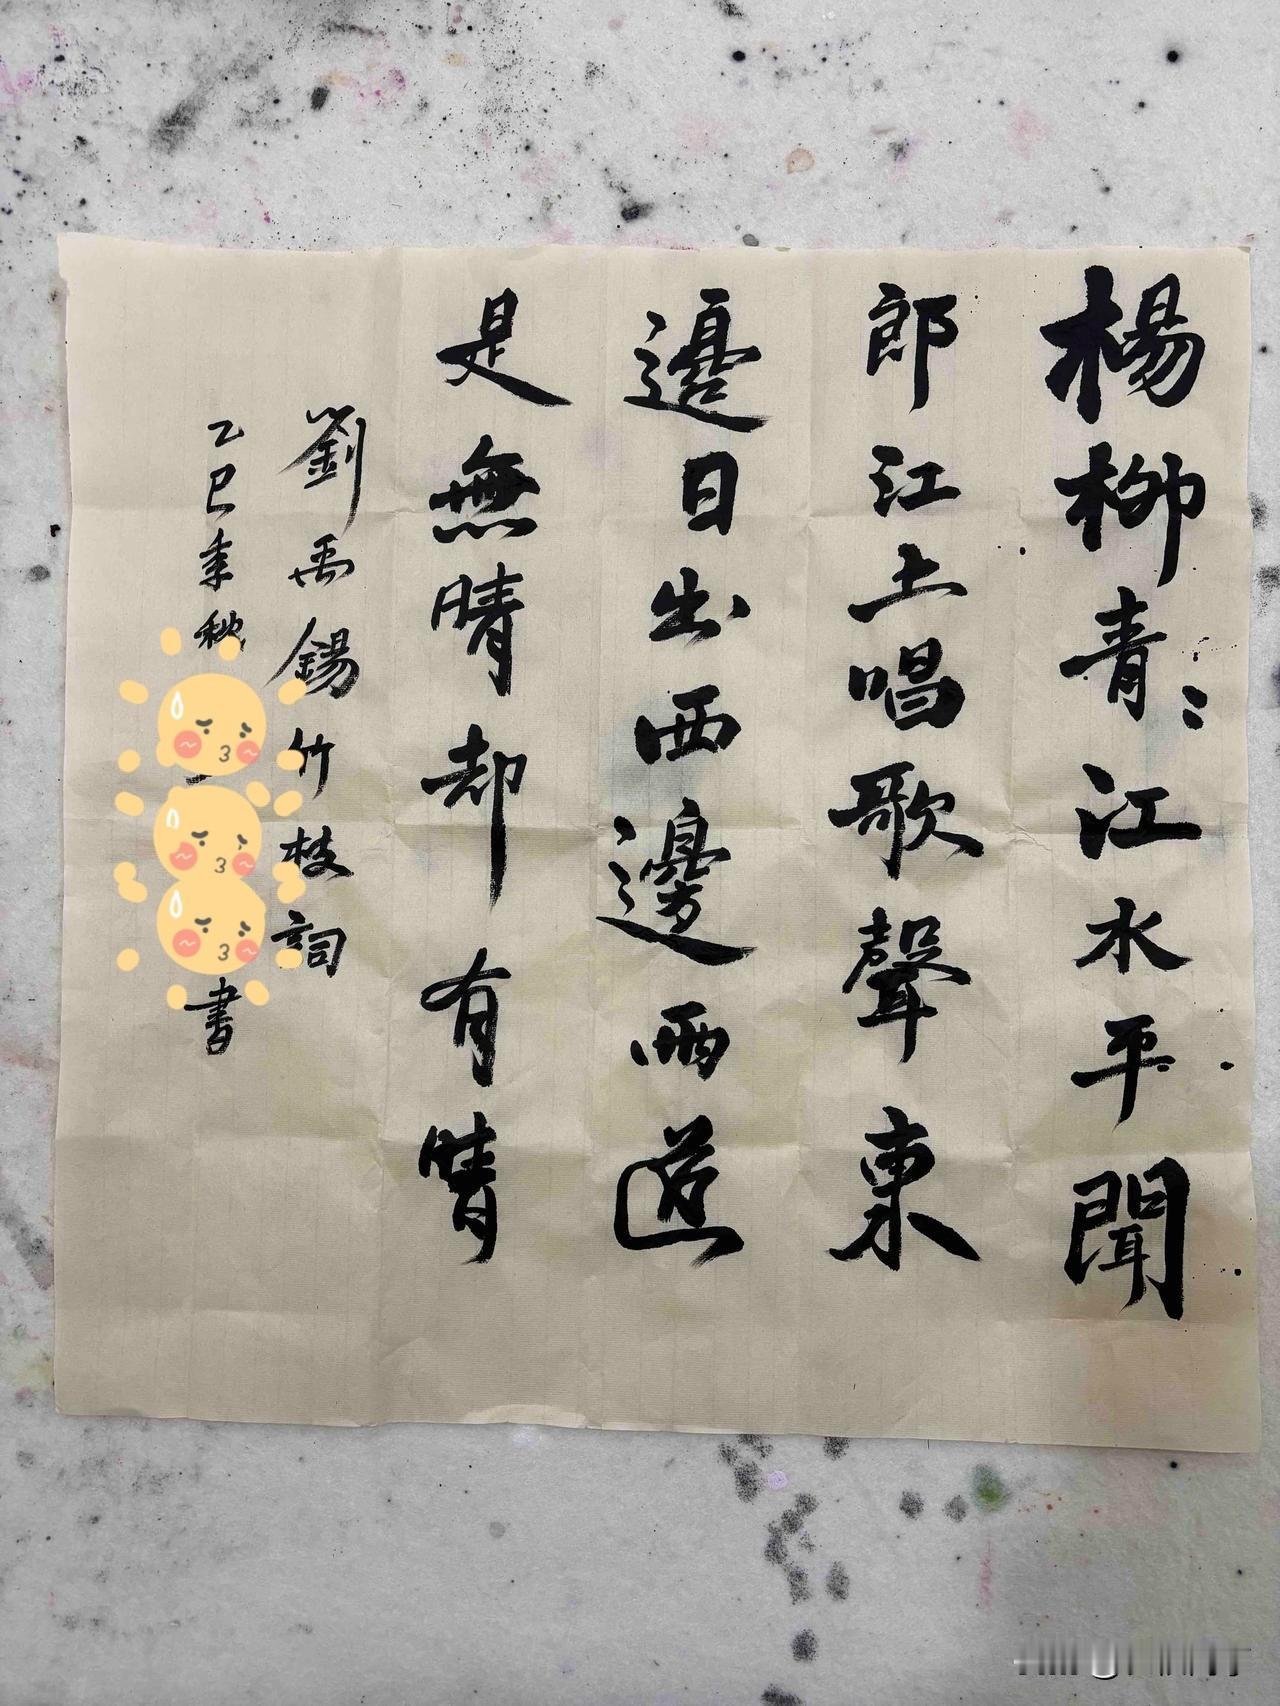 楊柳青〻江水平聞
郎江上唱歌聲東
邊日出西邊雨道
是無晴却有晴
劉禹錫竹枝詞
乙巳季秋 書